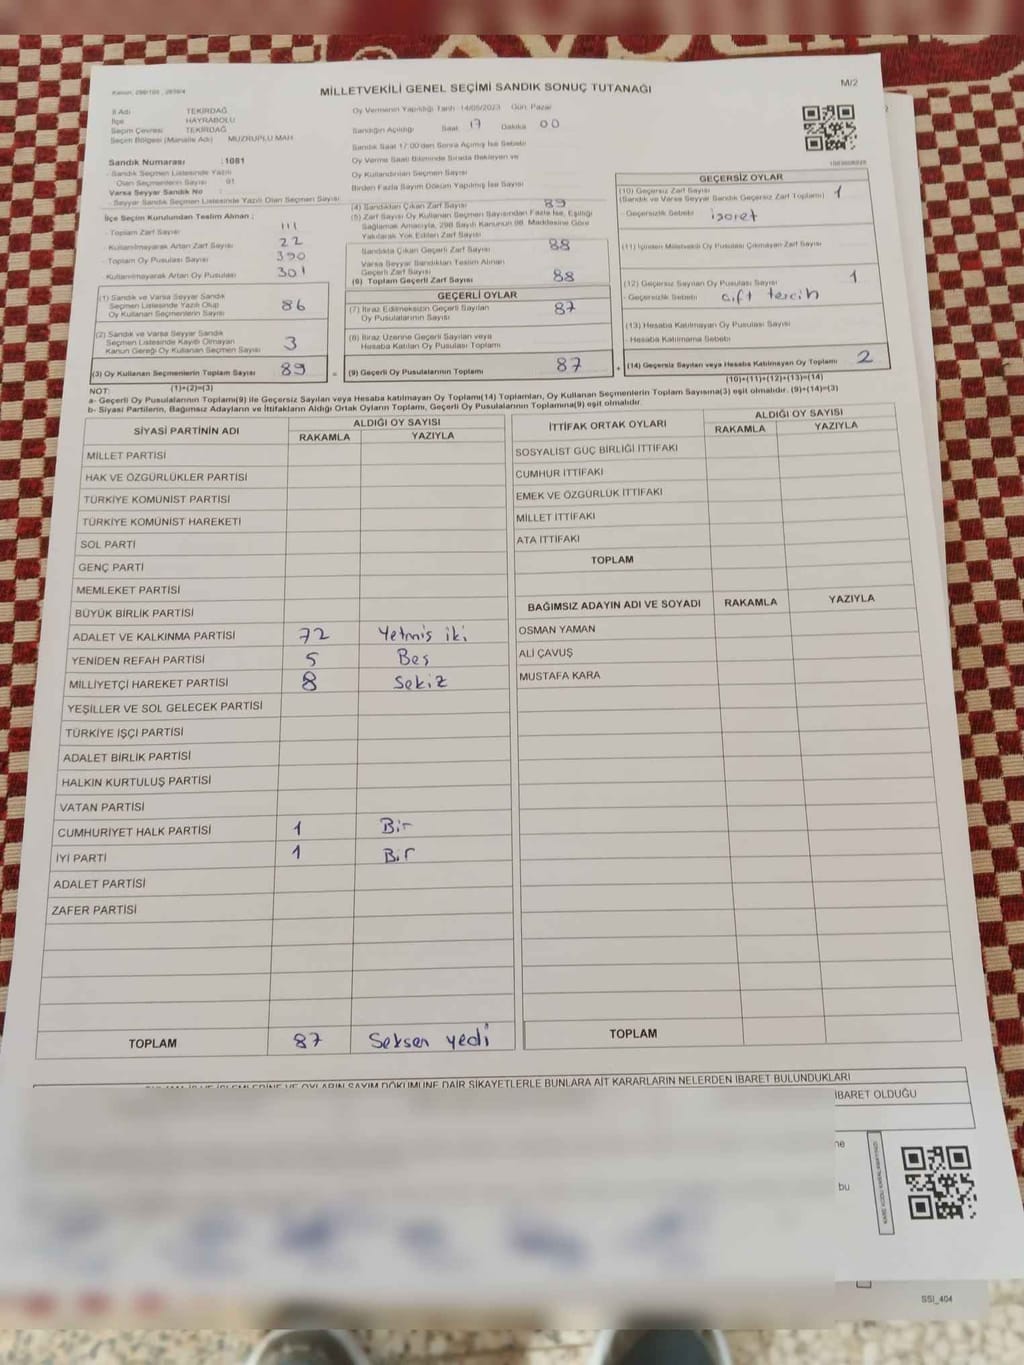 Kanun: 298/105 , 2839/4
MİLLETVEKİLİ GENEL SEÇİMİ SANDIK SONUÇ TUTANAĞI
M/2
İl Adı TEKİRDAĞ
İlçe HAYRABOLU
Seçim Çevresi TEKİRDAĞ
Seçim Bölgesi (Mahalle Adı) MUZRUPLU MAH.
Oy Vermenin Yapıldığı Tarih :14/05/2023 Gün: Pazar
Sandığın Açıldığı Saat 17 Dakika 00
Sandık Saat 17:00'den Sonra Açılmış İse Sebebi
Sandık Numarası : 1081
- Sandık Seçmen Listesinde Yazılı
Olan Seçmenlerin Sayısı 91
Varsa Seyyar Sandık No :
- Seyyar Sandık Seçmen Listesinde Yazılı Olan Seçmen Sayısı
Oy Verme Saati Bitiminde Sırada Bekleyen ve
Oy Kullandırılan Seçmen Sayısı
Birden Fazla Sayım Döküm Yapılmış İse Sayısı
İlçe Seçim Kurulundan Teslim Alınan ;
- Toplam Zarf Sayısı 111
- Kullanılmayarak Artan Zarf Sayısı 22
- Toplam Oy Pusulası Sayısı 390
- Kullanılmayarak Artan Oy Pusulası 301
(1) Sandık ve Varsa Seyyar Sandık
Seçmen Listesinde Yazılı Olup
Oy Kullanan Seçmenlerin Sayısı 86
(2) Sandık ve Varsa Seyyar Sandık
Seçmen Listesinde Kayıtlı Olmayan
Kanun Gereği Oy Kullanan Seçmen Sayısı 3
(3) Oy Kullanan Seçmenlerin Toplam Sayısı 89
(1)+(2)=(3)
(4) Sandıktan Çıkan Zarf Sayısı 89
(5) Zarf Sayısı Oy Kullanan Seçmen Sayısından Fazla İse, Eşitliği
Sağlamak Amacıyla, 298 Sayılı Kanunun 98. Maddesine Göre
Yakılarak Yok Edilen Zarf Sayısı
Sandıkta Çıkan Geçerli Zarf Sayısı 88
Varsa Seyyar Sandıktan Teslim Alınan
Geçerli Zarf Sayısı
(6) Toplam Geçerli Zarf Sayısı 88
GEÇERLİ OYLAR
(7) İtiraz Edilmeksizin Geçerli Sayılan
Oy Pusulalarının Sayısı 87
(8) İtiraz Üzerine Geçerli Sayılan veya
Hesaba Katılan Oy Pusulası Toplamı
= (9) Geçerli Oy Pusulalarının Toplamı 87
GEÇERSİZ OYLAR
(10) Geçersiz Zarf Sayısı
(Sandık ve Varsa Seyyar Sandık Geçersiz Zarf Toplamı) 1
- Geçersizlik Sebebi işaret
(11) İçinden Milletvekili Oy Pusulası Çıkmayan Zarf Sayısı
(12) Geçersiz Sayılan Oy Pusulası Sayısı 1
- Geçersizlik Sebebi çift tercih
(13) Hesaba Katılmayan Oy Pusulası Sayısı
- Hesaba Katılmama Sebebi
+ (14) Geçersiz Sayılan veya Hesaba Katılmayan Oy Toplamı 2
(10)+(11)+(12)+(13)=(14)
NOT:
a- Geçerli Oy Pusulalarının Toplamı(9) ile Geçersiz Sayılan veya Hesaba katılmayan Oy Toplamı(14) Toplamları, Oy Kullanan Seçmenlerin Toplam Sayısına(3) eşit olmalıdır. (9)+(14)=(3)
b- Siyasi Partilerin, Bağımsız Adayların ve İttifakların Aldığı Ortak Oyların Toplamı, Geçerli Oy Pusulalarının Toplamına(9) eşit olmalıdır.
SİYASİ PARTİNİN ADI ALDIĞI OY SAYISI
RAKAMLA YAZIYLA
MİLLET PARTİSİ
HAK VE ÖZGÜRLÜKLER PARTİSİ
TÜRKİYE KOMÜNİST PARTİSİ
TÜRKİYE KOMÜNİST HAREKETİ
SOL PARTİ
GENÇ PARTİ
MEMLEKET PARTİSİ
BÜYÜK BİRLİK PARTİSİ
ADALET VE KALKINMA PARTİSİ 72 Yetmiş iki
YENİDEN REFAH PARTİSİ 5 Beş
MİLLİYETÇİ HAREKET PARTİSİ 8 Sekiz
YEŞİLLER VE SOL GELECEK PARTİSİ
TÜRKİYE İŞÇİ PARTİSİ
ADALET BİRLİK PARTİSİ
HALKIN KURTULUŞ PARTİSİ
VATAN PARTİSİ
CUMHURİYET HALK PARTİSİ 1 Bir
İYİ PARTİ 1 Bir
ADALET PARTİSİ
ZAFER PARTİSİ
TOPLAM 87 Seksen yedi
İTTİFAK ORTAK OYLARI ALDIĞI OY SAYISI
RAKAMLA YAZIYLA
SOSYALİST GÜÇ BİRLİĞİ İTTİFAKI
CUMHUR İTTİFAKI
EMEK VE ÖZGÜRLÜK İTTİFAKI
MİLLET İTTİFAKI
ATA İTTİFAKI
TOPLAM
BAĞIMSIZ ADAYIN ADI VE SOYADI RAKAMLA YAZIYLA
OSMAN YAMAN
ALİ ÇAVUŞ
MUSTAFA KARA
TOPLAM
VE OYLARIN SAYIM DÖKÜMÜNE DAİR ŞİKAYETLERLE BUNLARA AİT KARARLARIN NELERDEN İBARET BULUNDUKLARI
İBARET OLDUĞU
bu
SSİ_404